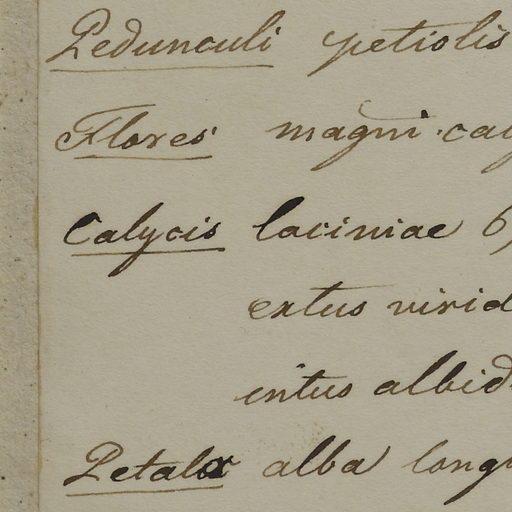 Pedunculi petiolis
Flores magni cay
Calycis laciniae 6,
extus virid
intus albid
Petala alba long